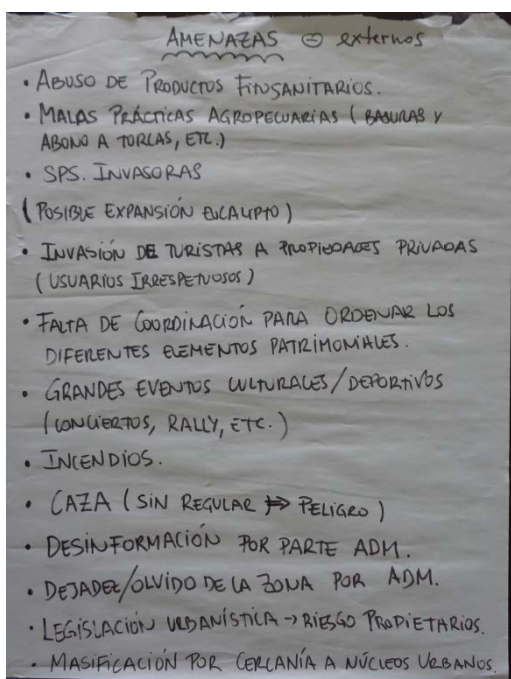 AMENAZAS ⊖ externos
• ABUSO DE PRODUCTOS FITOSANITARIOS.
• MALAS PRÁCTICAS AGROPECUARIAS (BASURAS Y
ABONO A TORCAS, ETC.)
• SPS. INVASORAS
(POSIBLE EXPANSIÓN EUCALIPTO)
• INVASIÓN DE TURISTAS A PROPIEDADES PRIVADAS
(USUARIOS IRRESPETUOSOS)
• FALTA DE COORDINACIÓN PARA ORDENAR LOS
DIFERENTES ELEMENTOS PATRIMONIALES.
• GRANDES EVENTOS CULTURALES/DEPORTIVOS
(CONCIERTOS, RALLY, ETC.)
• INCENDIOS.
• CAZA (SIN REGULAR → PELIGRO)
• DESINFORMACIÓN POR PARTE ADM.
• DEJADEZ/OLVIDO DE LA ZONA POR ADM.
• LEGISLACIÓN URBANÍSTICA → RIESGO PROPIETARIOS.
• MASIFICACIÓN POR CERCANÍA A NÚCLEOS URBANOS.